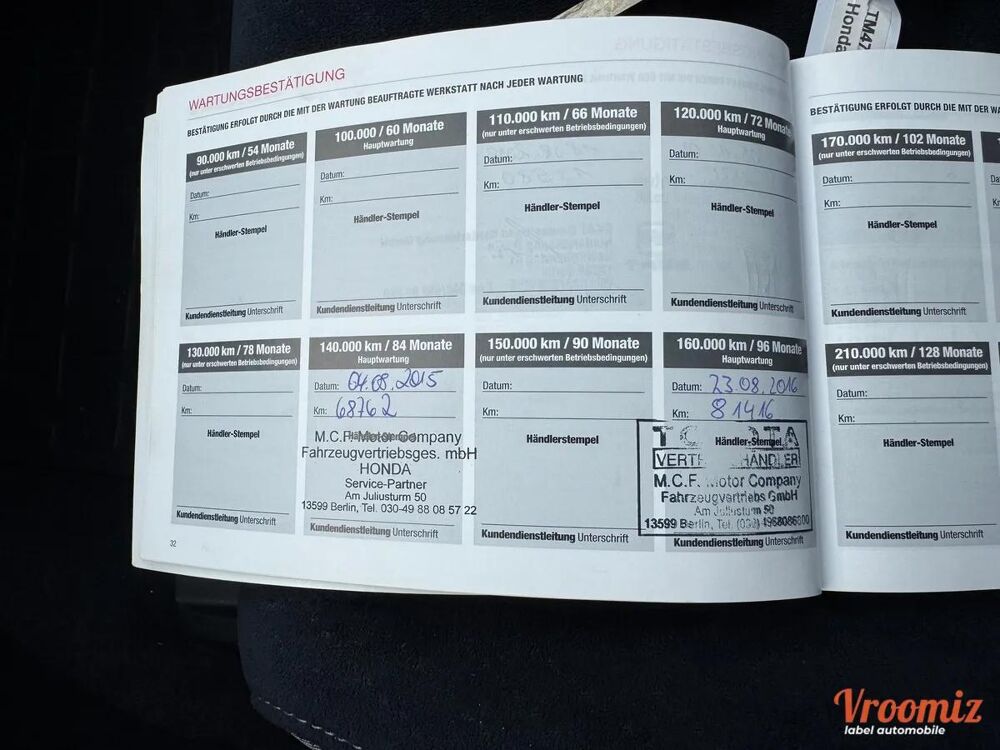 TM47
Honda
WARTUNGSBESTÄTIGUNG
BESTÄTIGUNG ERFOLGT DURCH DIE MIT DER WARTUNG BEAUFTRAGTE WERKSTATT NACH JEDER WARTUNG
90.000 km / 54 Monate
(nur unter erschwerten Betriebsbedingungen)
Datum:
Km:
Händler-Stempel
Kundendienstleitung Unterschrift
100.000 / 60 Monate
Hauptwartung
Datum:
Km:
Händler-Stempel
Kundendienstleitung Unterschrift
110.000 km / 66 Monate
(nur unter erschwerten Betriebsbedingungen)
Datum:
Km:
Händler-Stempel
Kundendienstleitung Unterschrift
120.000 km / 72 Monate
Hauptwartung
Datum:
Km:
Händler-Stempel
Kundendienstleitung Unterschrift
130.000 km / 78 Monate
(nur unter erschwerten Betriebsbedingungen)
Datum:
Km:
Händler-Stempel
Kundendienstleitung Unterschrift
140.000 km / 84 Monate
Hauptwartung
Datum: 04.08.2015
Km: 68762
Händler-Stempel
M.C.F. Motor Company
Fahrzeugvertriebsges. mbH
HONDA
Service-Partner
Am Juliusturm 50
13599 Berlin, Tel. 030-49 88 08 57 22
Kundendienstleitung Unterschrift
150.000 km / 90 Monate
(nur unter erschwerten Betriebsbedingungen)
Datum:
Km:
Händlerstempel
Kundendienstleitung Unterschrift
160.000 km / 96 Monate
Hauptwartung
Datum: 23.08.2016
Km: 81416
Händler-Stempel
M.C.F. Motor Company
Fahrzeugvertriebs GmbH
Am Juliusturm 50
13599 Berlin, Tel.
Kundendienstleitung Unterschrift
32
BESTÄTIGUNG ERFOLGT DURCH DIE MIT DER
170.000 km / 102 Monate
(nur unter erschwerten Betriebsbedingungen)
Datum:
Km:
Händler-Stempel
Kundendienstleitung Unterschrift
210.000 km / 128 Monate
(nur unter erschwerten Betriebsbedingungen)
Datum:
Km:
Händler-Stempel
Kundendienstleitung Unterschrift
Vroomiz
label automobile